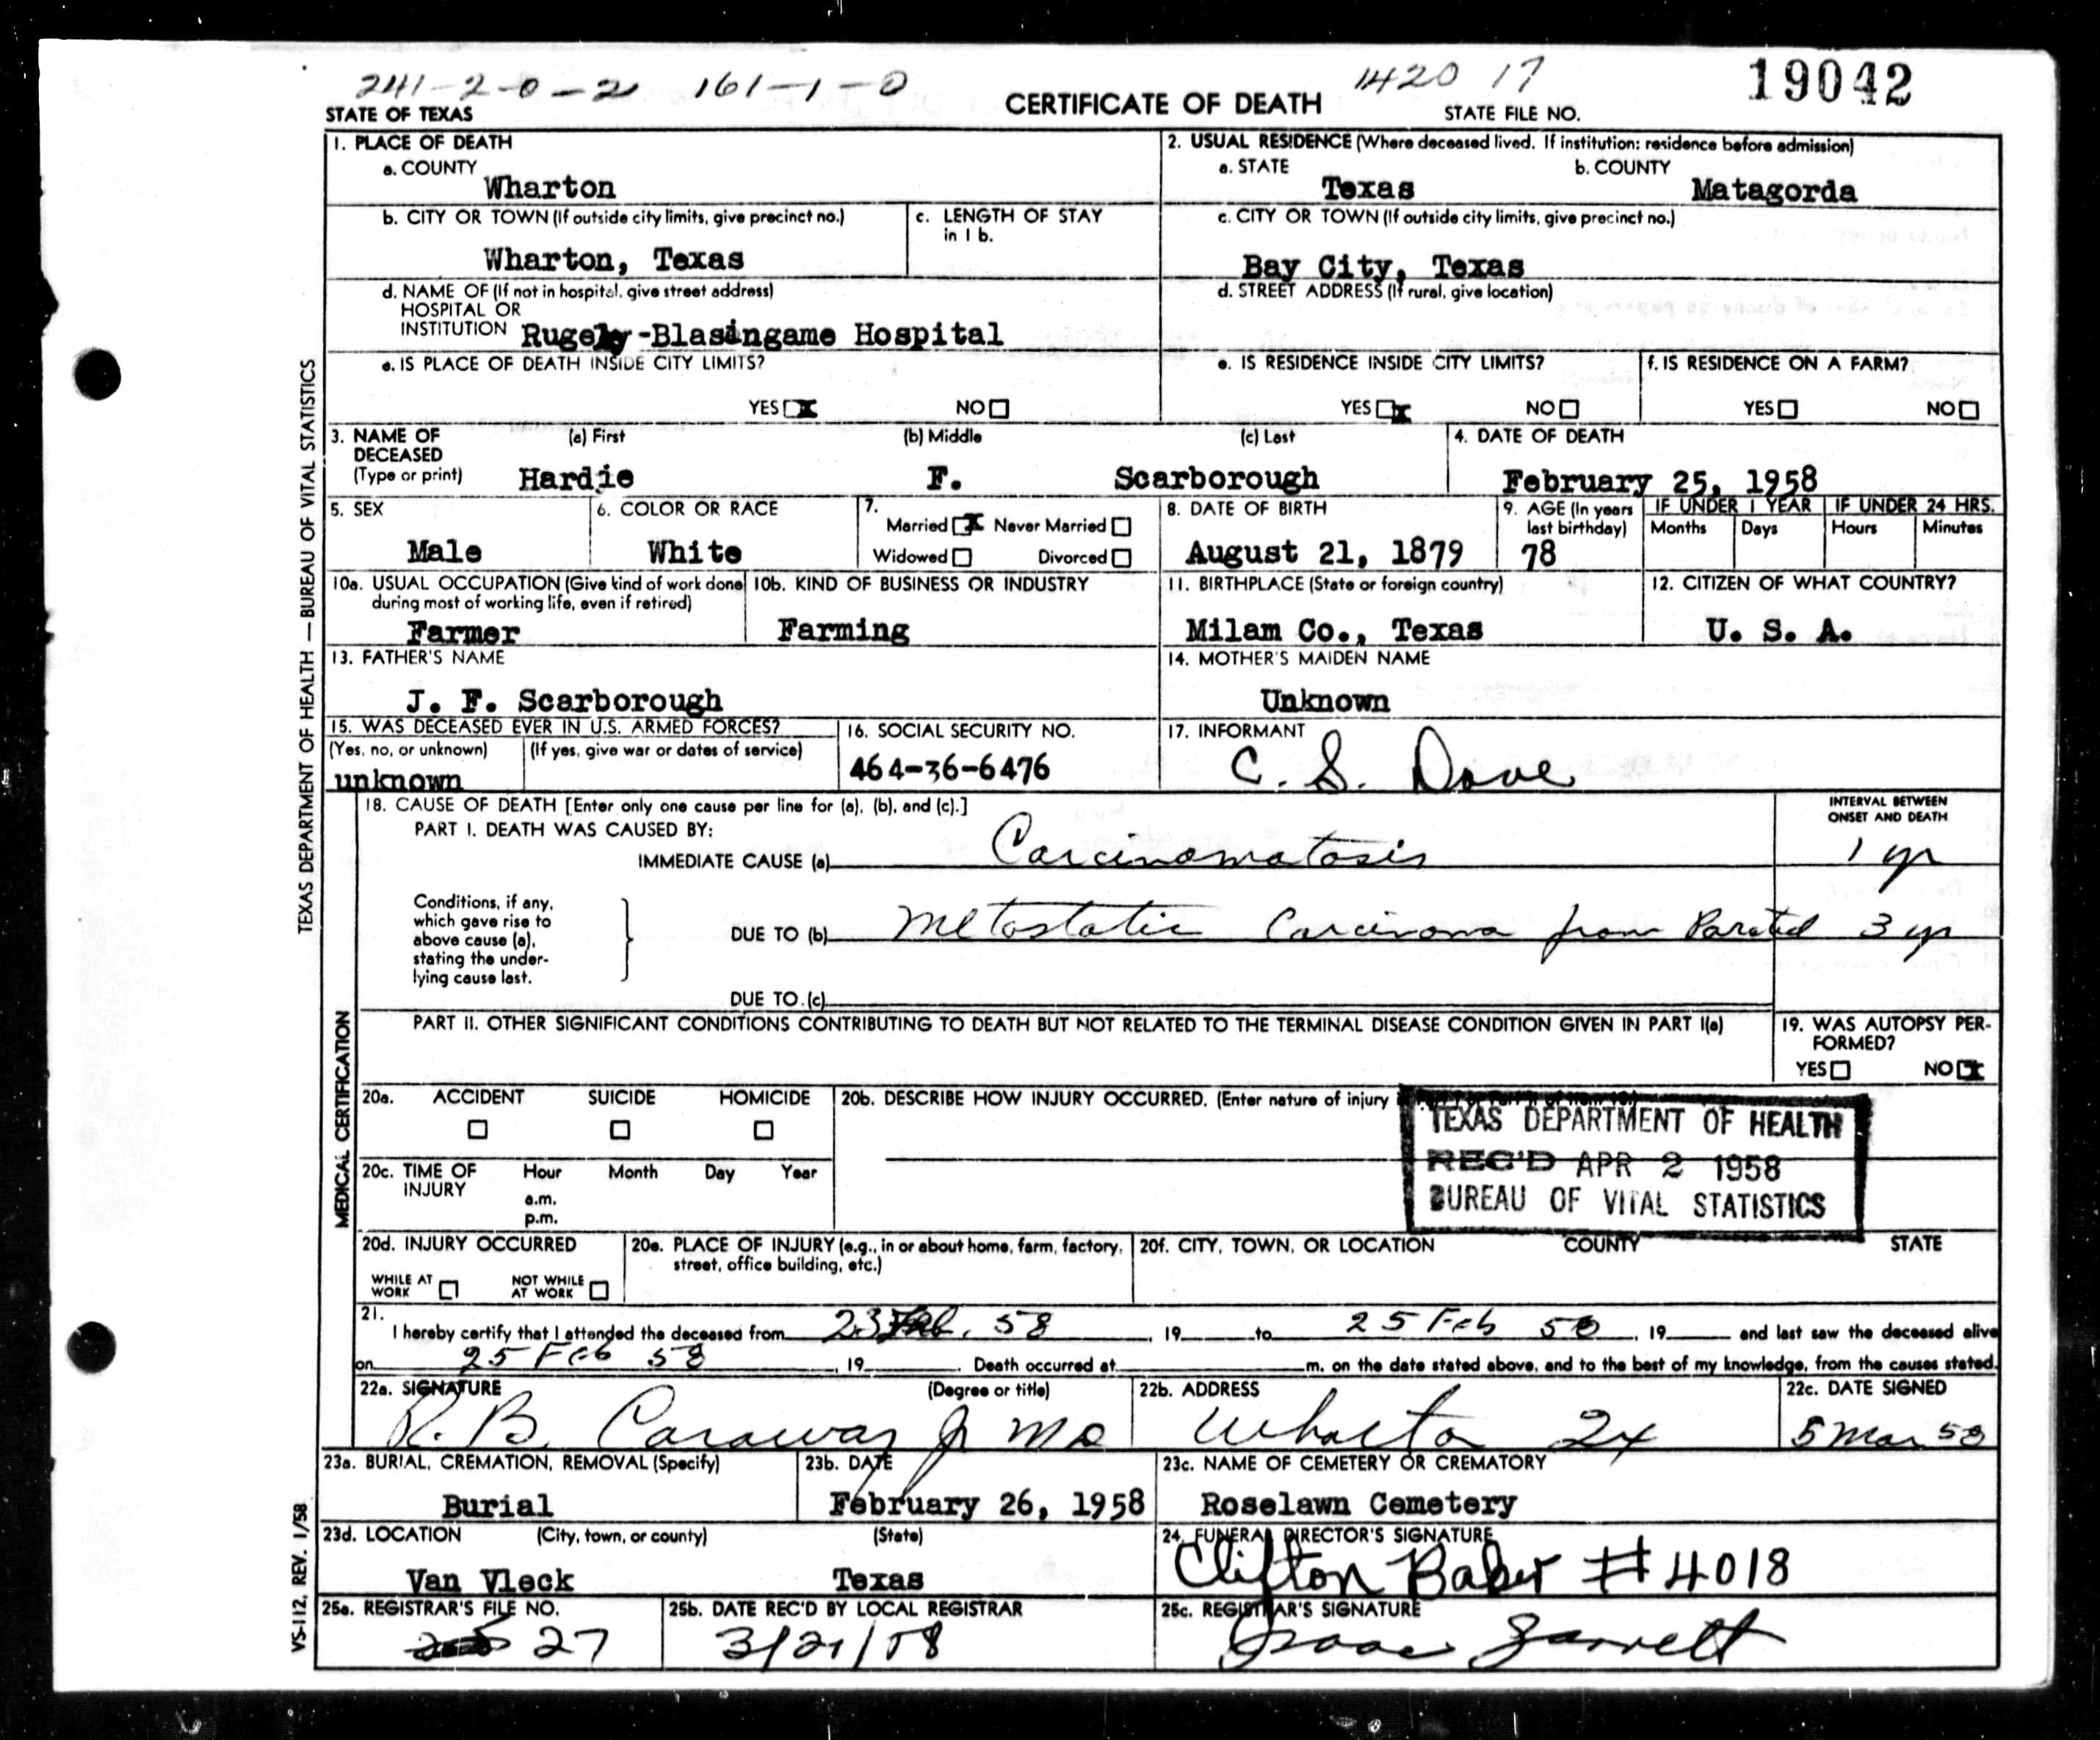 241-2-0-2 161-1-0 1420 17 19042
STATE OF TEXAS CERTIFICATE OF DEATH STATE FILE NO.
1. PLACE OF DEATH
a. COUNTY
Wharton
2. USUAL RESIDENCE (Where deceased lived. If institution: residence before admission)
a. STATE b. COUNTY
Texas Matagorda
b. CITY OR TOWN (If outside city limits, give precinct no.)
Wharton, Texas
c. LENGTH OF STAY
in 1 b.
c. CITY OR TOWN (If outside city limits, give precinct no.)
Bay City, Texas
d. NAME OF (If not in hospital, give street address)
HOSPITAL OR
INSTITUTION Rugely-Blasingame Hospital
d. STREET ADDRESS (If rural, give location)
e. IS PLACE OF DEATH INSIDE CITY LIMITS?
YES x NO
e. IS RESIDENCE INSIDE CITY LIMITS?
YES x NO
f. IS RESIDENCE ON A FARM?
YES NO
3. NAME OF (a) First (b) Middle (c) Last
DECEASED
(Type or print) Hardie F. Scarborough
4. DATE OF DEATH
February 25, 1958
5. SEX
Male
6. COLOR OR RACE
White
7.
Married x Never Married
Widowed Divorced
8. DATE OF BIRTH
August 21, 1879
9. AGE (In years
last birthday)
78
IF UNDER 1 YEAR IF UNDER 24 HRS.
Months Days Hours Minutes
10a. USUAL OCCUPATION (Give kind of work done
during most of working life, even if retired)
Farmer
10b. KIND OF BUSINESS OR INDUSTRY
Farming
11. BIRTHPLACE (State or foreign country)
Milam Co., Texas
12. CITIZEN OF WHAT COUNTRY?
U. S. A.
13. FATHER'S NAME
J. F. Scarborough
14. MOTHER'S MAIDEN NAME
Unknown
15. WAS DECEASED EVER IN U.S. ARMED FORCES?
(Yes, no, or unknown) (If yes, give war or dates of service)
unknown
16. SOCIAL SECURITY NO.
464-36-6476
17. INFORMANT
C. S. Dove
18. CAUSE OF DEATH [Enter only one cause per line for (a), (b), and (c).]
PART I. DEATH WAS CAUSED BY:
INTERVAL BETWEEN
ONSET AND DEATH
IMMEDIATE CAUSE (a) Carcinomatosis 1 yr
Conditions, if any,
which gave rise to
above cause (a),
stating the under-
lying cause last.
DUE TO (b) Metastatic Carcinoma from Parotid 3 yr
DUE TO (c)
PART II. OTHER SIGNIFICANT CONDITIONS CONTRIBUTING TO DEATH BUT NOT RELATED TO THE TERMINAL DISEASE CONDITION GIVEN IN PART I(a)
19. WAS AUTOPSY PER-
FORMED?
YES NO x
20a. ACCIDENT SUICIDE HOMICIDE
20b. DESCRIBE HOW INJURY OCCURRED. (Enter nature of injury
TEXAS DEPARTMENT OF HEALTH
REC'D APR 2 1958
BUREAU OF VITAL STATISTICS
20c. TIME OF Hour Month Day Year
INJURY a.m.
p.m.
20d. INJURY OCCURRED
WHILE AT NOT WHILE
WORK AT WORK
20e. PLACE OF INJURY (e.g., in or about home, farm, factory,
street, office building, etc.)
20f. CITY, TOWN, OR LOCATION COUNTY STATE
21.
I hereby certify that I attended the deceased from 23 Feb. 58, 19 to 25 Feb 58, 19 and last saw the deceased alive
on 25 Feb 58, 19. Death occurred at m. on the date stated above, and to the best of my knowledge, from the causes stated.
22a. SIGNATURE (Degree or title)
R. B. Caraway Jr MD
22b. ADDRESS
Wharton Tx
22c. DATE SIGNED
5 Mar 58
23a. BURIAL, CREMATION, REMOVAL (Specify)
Burial
23b. DATE
February 26, 1958
23c. NAME OF CEMETERY OR CREMATORY
Roselawn Cemetery
23d. LOCATION (City, town, or county) (State)
Van Vleck Texas
24. FUNERAL DIRECTOR'S SIGNATURE
Clifton Baker #4018
25a. REGISTRAR'S FILE NO.
27
25b. DATE REC'D BY LOCAL REGISTRAR
3/21/58
25c. REGISTRAR'S SIGNATURE
Isaac Garrett
TEXAS DEPARTMENT OF HEALTH — BUREAU OF VITAL STATISTICS
MEDICAL CERTIFICATION
VS-112, REV. 1/58